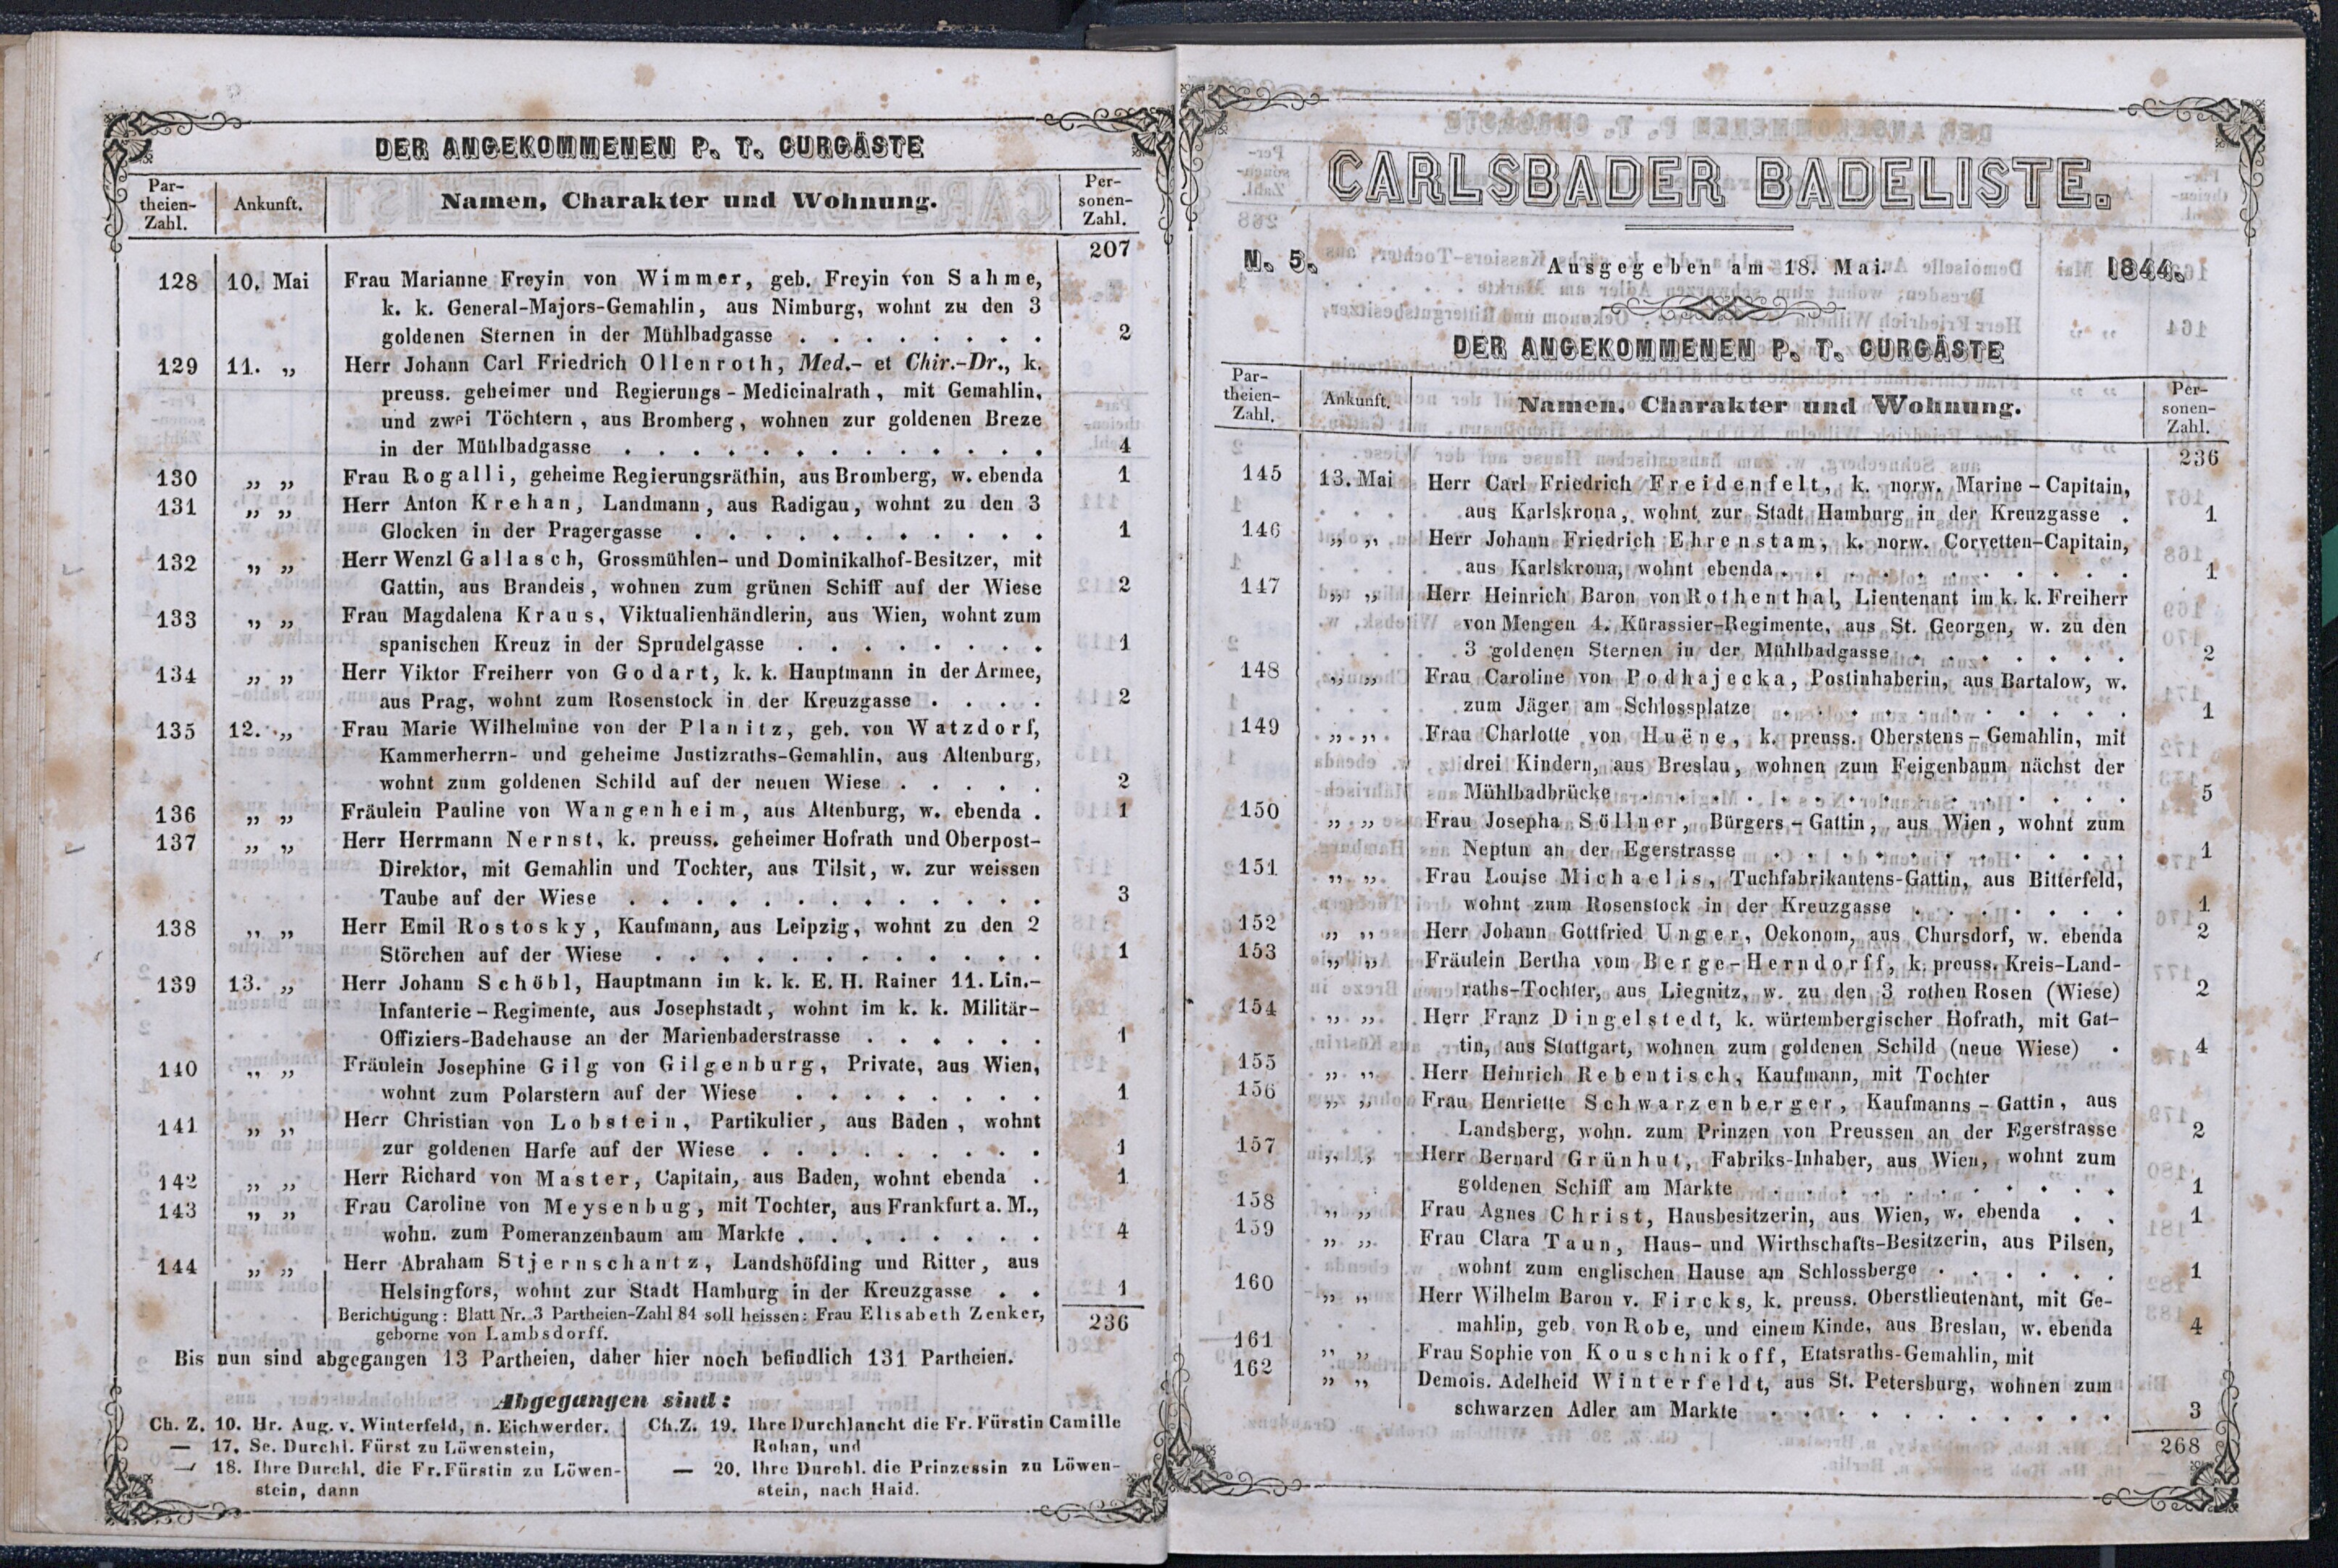 DER ANGEKOMMENEN P. T. CURGÄSTE
Par-
theien-
Zahl.
Ankunft.
Namen, Charakter und Wohnung.
Per-
sonen-
Zahl.
207
128 10. Mai Frau Marianne Freyin von Wimmer, geb. Freyin von Sahme,
k. k. General-Majors-Gemahlin, aus Nimburg, wohnt zu den 3
goldenen Sternen in der Mühlbadgasse . . . . . . . . 2
129 11. „ Herr Johann Carl Friedrich Ollenroth, Med.- et Chir.-Dr., k.
preuss. geheimer und Regierungs-Medicinalrath, mit Gemahlin,
und zwei Töchtern, aus Bromberg, wohnen zur goldenen Breze
in der Mühlbadgasse . . . . . . . . . . . . 4
130 „ „ Frau Rogalli, geheime Regierungsräthin, aus Bromberg, w. ebenda 1
131 „ „ Herr Anton Krehan, Landmann, aus Radigau, wohnt zu den 3
Glocken in der Pragergasse . . . . . . . . . . 1
132 „ „ Herr Wenzl Gallasch, Grossmühlen- und Dominikalhof-Besitzer, mit
Gattin, aus Brandeis, wohnen zum grünen Schiff auf der Wiese 2
133 „ „ Frau Magdalena Kraus, Viktualienhändlerin, aus Wien, wohnt zum
spanischen Kreuz in der Sprudelgasse . . . . . . . 1
134 „ „ Herr Viktor Freiherr von Godart, k. k. Hauptmann in der Armee,
aus Prag, wohnt zum Rosenstock in der Kreuzgasse . . . . 2
135 12. „ Frau Marie Wilhelmine von der Planitz, geb. von Watzdorf,
Kammerherrn- und geheime Justizraths-Gemahlin, aus Altenburg,
wohnt zum goldenen Schild auf der neuen Wiese . . . . . 2
136 „ „ Fräulein Pauline von Wangenheim, aus Altenburg, w. ebenda . 1
137 „ „ Herr Herrmann Nernst, k. preuss. geheimer Hofrath und Oberpost-
Direktor, mit Gemahlin und Tochter, aus Tilsit, w. zur weissen
Taube auf der Wiese . . . . . . . . . . . . 3
138 „ „ Herr Emil Rostosky, Kaufmann, aus Leipzig, wohnt zu den 2
Störchen auf der Wiese . . . . . . . . . . . 1
139 13. „ Herr Johann Schöbl, Hauptmann im k. k. E. H. Rainer 11. Lin.-
Infanterie-Regimente, aus Josephstadt, wohnt im k. k. Militär-
Offiziers-Badehause an der Marienbaderstrasse . . . . . . 1
140 „ „ Fräulein Josephine Gilg von Gilgenburg, Private, aus Wien,
wohnt zum Polarstern auf der Wiese . . . . . . . . 1
141 „ „ Herr Christian von Lobstein, Partikulier, aus Baden, wohnt
zur goldenen Harfe auf der Wiese . . . . . . . . . 1
142 „ „ Herr Richard von Master, Capitain, aus Baden, wohnt ebenda . 1
143 „ „ Frau Caroline von Meysenbug, mit Tochter, aus Frankfurt a. M.,
wohn. zum Pomeranzenbaum am Markte . . . . . . . . 4
144 „ „ Herr Abraham Stjernschantz, Landshöfding und Ritter, aus
Helsingfors, wohnt zur Stadt Hamburg in der Kreuzgasse . . 1
Berichtigung: Blatt Nr. 3 Partheien-Zahl 84 soll heissen: Frau Elisabeth Zenker,
geborne von Lambsdorff.
236
Bis nun sind abgegangen 13 Partheien, daher hier noch befindlich 131 Partheien.
Abgegangen sind:
Ch. Z. 10. Hr. Aug. v. Winterfeld, n. Eichwerder.
— 17. Se. Durchl. Fürst zu Löwenstein,
— 18. Ihre Durchl. die Fr. Fürstin zu Löwen-
stein, dann
Ch. Z. 19. Ihre Durchlaucht die Fr. Fürstin Camille
Rohan, und
— 20. Ihre Durchl. die Prinzessin zu Löwen-
stein, nach Haid.
CARLSBADER BADELISTE.
N. 5. Ausgegeben am 18. Mai. 1844.
DER ANGEKOMMENEN P. T. CURGÄSTE
Par-
theien-
Zahl.
Ankunft.
Namen, Charakter und Wohnung.
Per-
sonen-
Zahl.
236
145 13. Mai Herr Carl Friedrich Freidenfelt, k. norw. Marine-Capitain,
aus Karlskrona, wohnt zur Stadt Hamburg in der Kreuzgasse . 1
146 „ „ Herr Johann Friedrich Ehrenstam, k. norw. Corvetten-Capitain,
aus Karlskrona, wohnt ebenda . . . . . . . . . . 1
147 „ „ Herr Heinrich Baron von Rothenthal, Lieutenant im k. k. Freiherr
von Mengen 4. Kürassier-Regimente, aus St. Georgen, w. zu den
3 goldenen Sternen in der Mühlbadgasse . . . . . . . 2
148 „ „ Frau Caroline von Podhajecka, Postinhaberin, aus Bartalow, w.
zum Jäger am Schlossplatze . . . . . . . . . . 1
149 „ „ Frau Charlotte von Huëne, k. preuss. Oberstens-Gemahlin, mit
drei Kindern, aus Breslau, wohnen zum Feigenbaum nächst der
Mühlbadbrücke . . . . . . . . . . . . . . 5
150 „ „ Frau Josepha Söllner, Bürgers-Gattin, aus Wien, wohnt zum
Neptun an der Egerstrasse . . . . . . . . . . . 1
151 „ „ Frau Louise Michaelis, Tuchfabrikantens-Gattin, aus Bitterfeld,
wohnt zum Rosenstock in der Kreuzgasse . . . . . . . 1
152 „ „ Herr Johann Gottfried Unger, Oekonom, aus Chursdorf, w. ebenda 2
153 „ „ Fräulein Bertha vom Berge-Herndorff, k. preuss. Kreis-Land-
raths-Tochter, aus Liegnitz, w. zu den 3 rothen Rosen (Wiese) 2
154 „ „ Herr Franz Dingelstedt, k. würtembergischer Hofrath, mit Gat-
tin, aus Stuttgart, wohnen zum goldenen Schild (neue Wiese) . 4
155 „ „ Herr Heinrich Rebentisch, Kaufmann, mit Tochter
156 „ „ Frau Henriette Schwarzenberger, Kaufmanns-Gattin, aus
Landsberg, wohn. zum Prinzen von Preussen an der Egerstrasse 2
157 „ „ Herr Bernard Grünhut, Fabriks-Inhaber, aus Wien, wohnt zum
goldenen Schiff am Markte . . . . . . . . . . . 1
158 „ „ Frau Agnes Christ, Hausbesitzerin, aus Wien, w. ebenda . . 1
159 „ „ Frau Clara Taun, Haus- und Wirthschafts-Besitzerin, aus Pilsen,
wohnt zum englischen Hause am Schlossberge . . . . . . 1
160 „ „ Herr Wilhelm Baron v. Fircks, k. preuss. Oberstlieutenant, mit Ge-
mahlin, geb. von Robe, und einem Kinde, aus Breslau, w. ebenda 4
161 „ „ Frau Sophie von Kouschnikoff, Etatsraths-Gemahlin, mit
162 „ „ Demois. Adelheid Winterfeldt, aus St. Petersburg, wohnen zum
schwarzen Adler am Markte . . . . . . . . . . 3
268